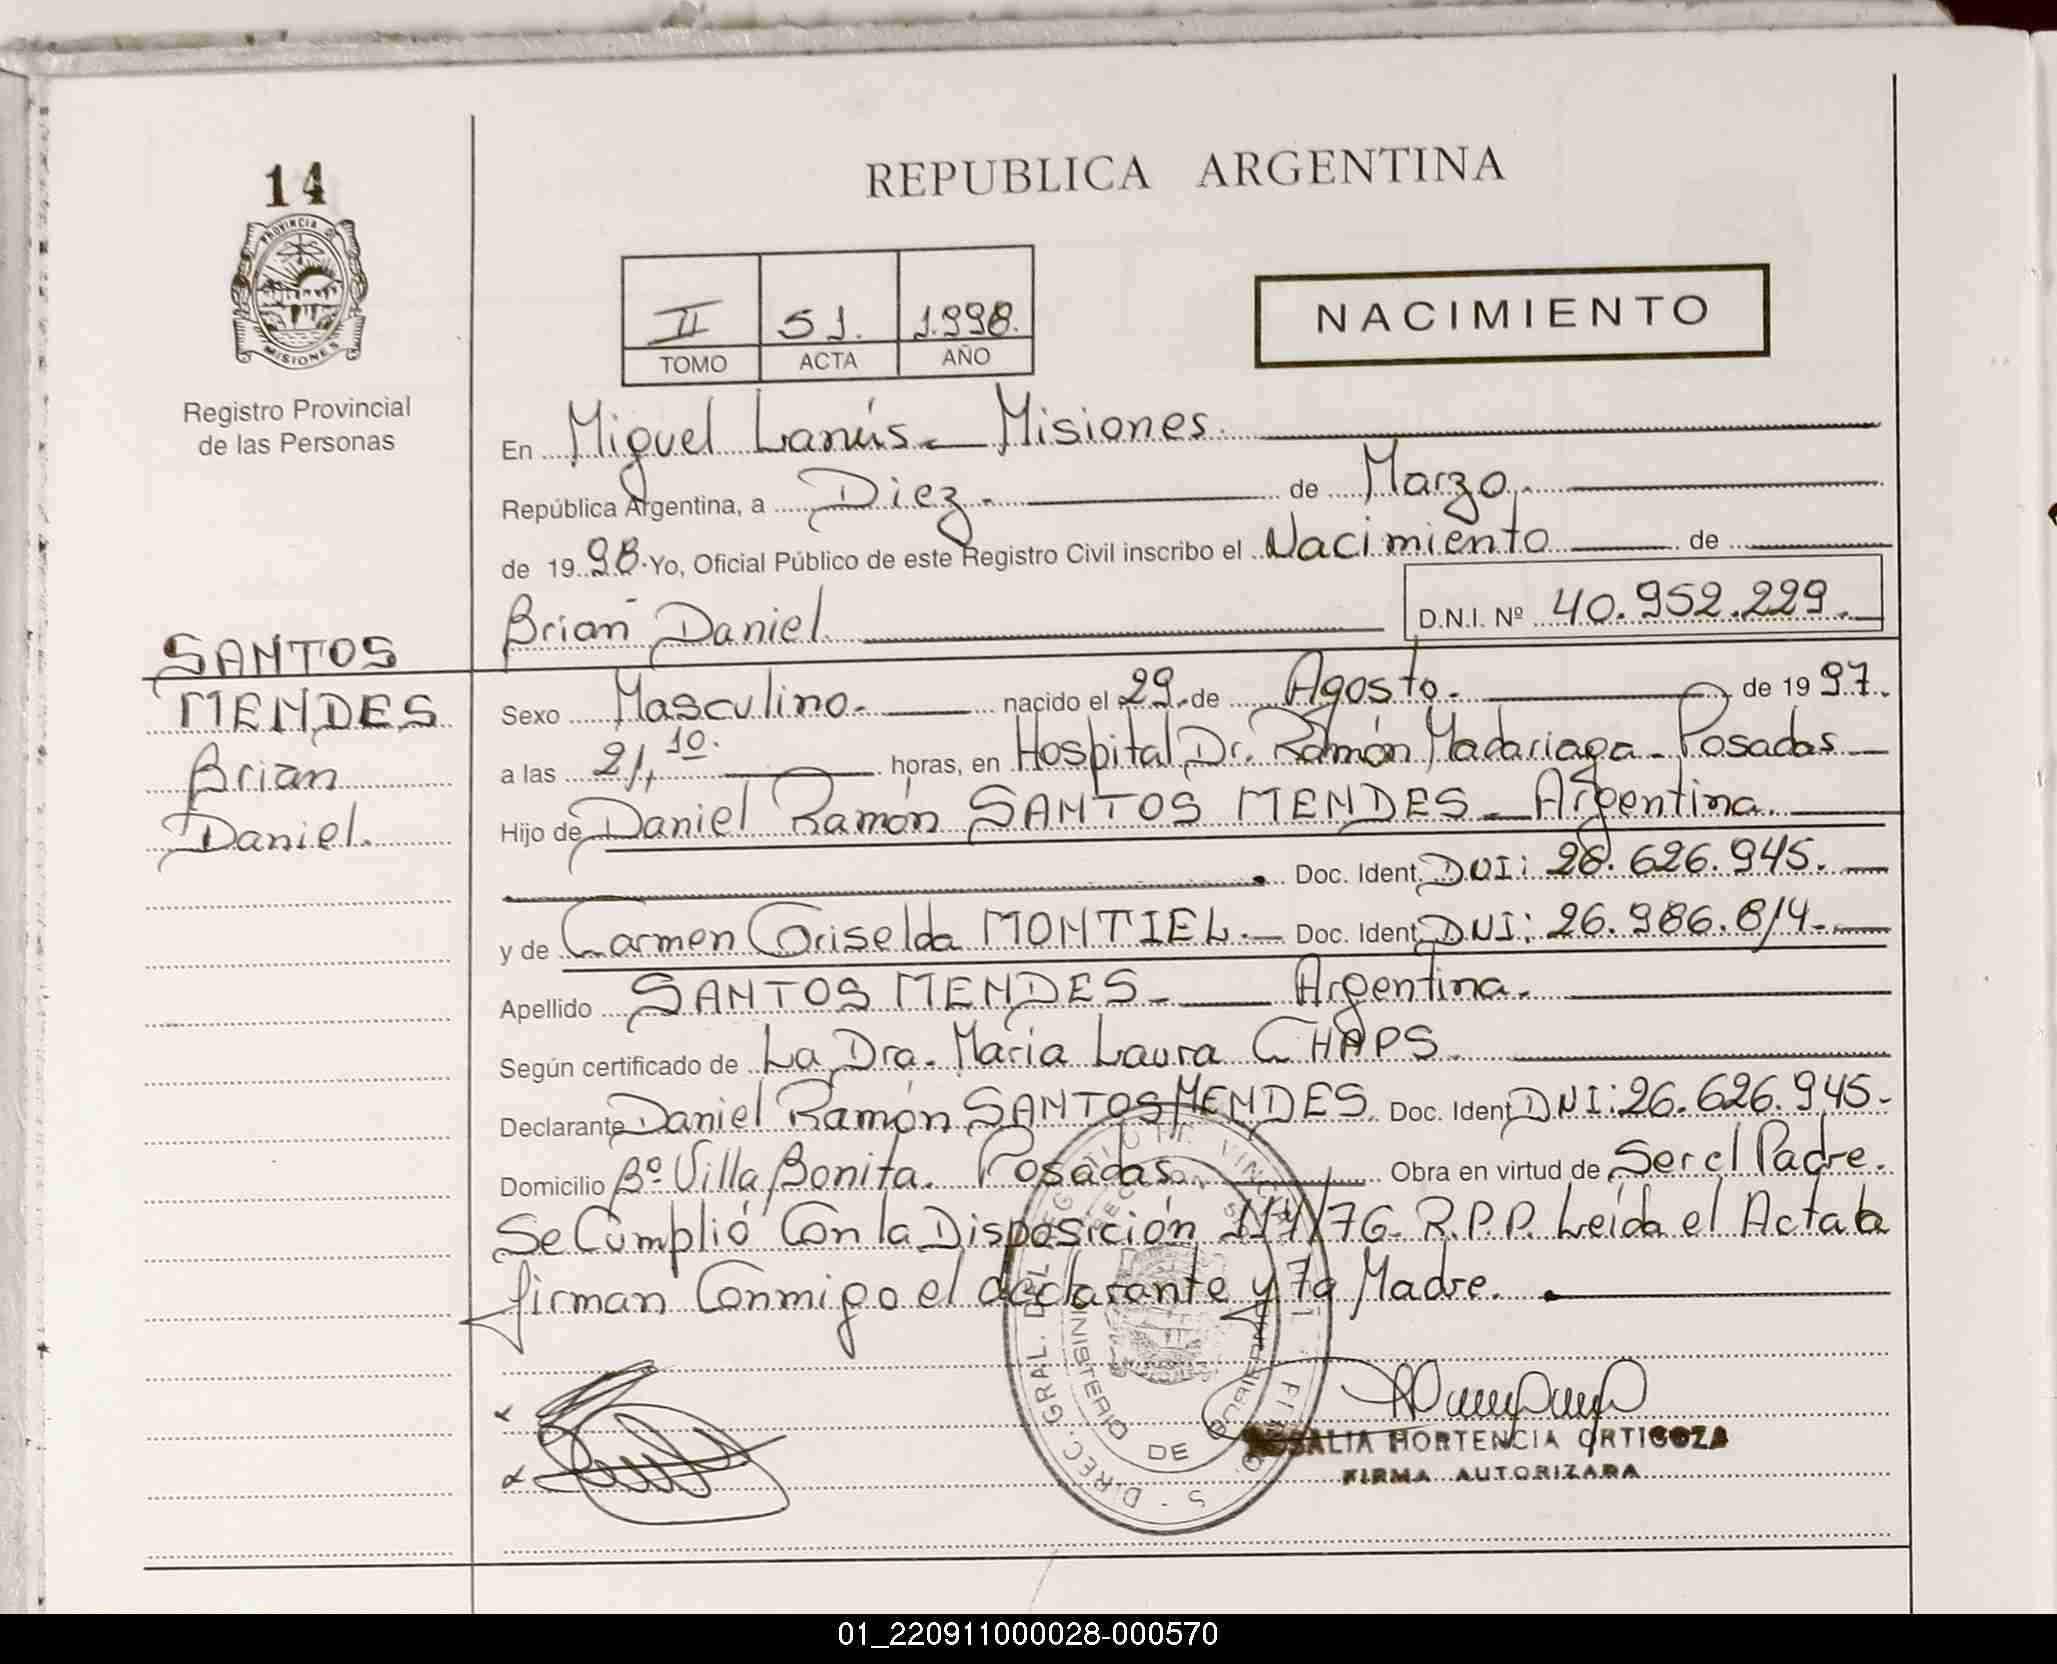 14
PROVINCIA DE
MISIONES
Registro Provincial
de las Personas
SANTOS
MENDES
Brian
Daniel.
REPUBLICA ARGENTINA
II 51. 1.998.
TOMO ACTA AÑO
NACIMIENTO
En Miguel Lanús - Misiones.
República Argentina, a Diez. de Marzo.
de 1998. Yo, Oficial Público de este Registro Civil inscribo el Nacimiento de
Brian Daniel. D.N.I. Nº 40.952.229.
Sexo Masculino. nacido el 29. de Agosto. de 1997.
a las 21,10. horas, en Hospital Dr. Ramón Madariaga - Posadas
Hijo de Daniel Ramón SANTOS MENDES - Argentina.
Doc. Ident. DNI: 26.626.945.
y de Carmen Griselda MONTIEL. Doc. Ident. DNI: 26.986.814.
Apellido SANTOS MENDES - Argentina.
Según certificado de La Dra. María Laura CHAPS.
Declarante Daniel Ramón SANTOS MENDES. Doc. Ident. DNI: 26.626.945.
Domicilio Bº Villa Bonita. Posadas. Obra en virtud de Ser el Padre.
Se Cumplió Con la Disposición /76. R.P.P. Leída el Acta la
firman Conmigo el declarante y la Madre.
DIREC. GRAL. DEL REGISTRO
MINISTERIO DE GOBIERNO
ROSALIA HORTENCIA ORTIGOZA
FIRMA AUTORIZADA
01_220911000028-000570